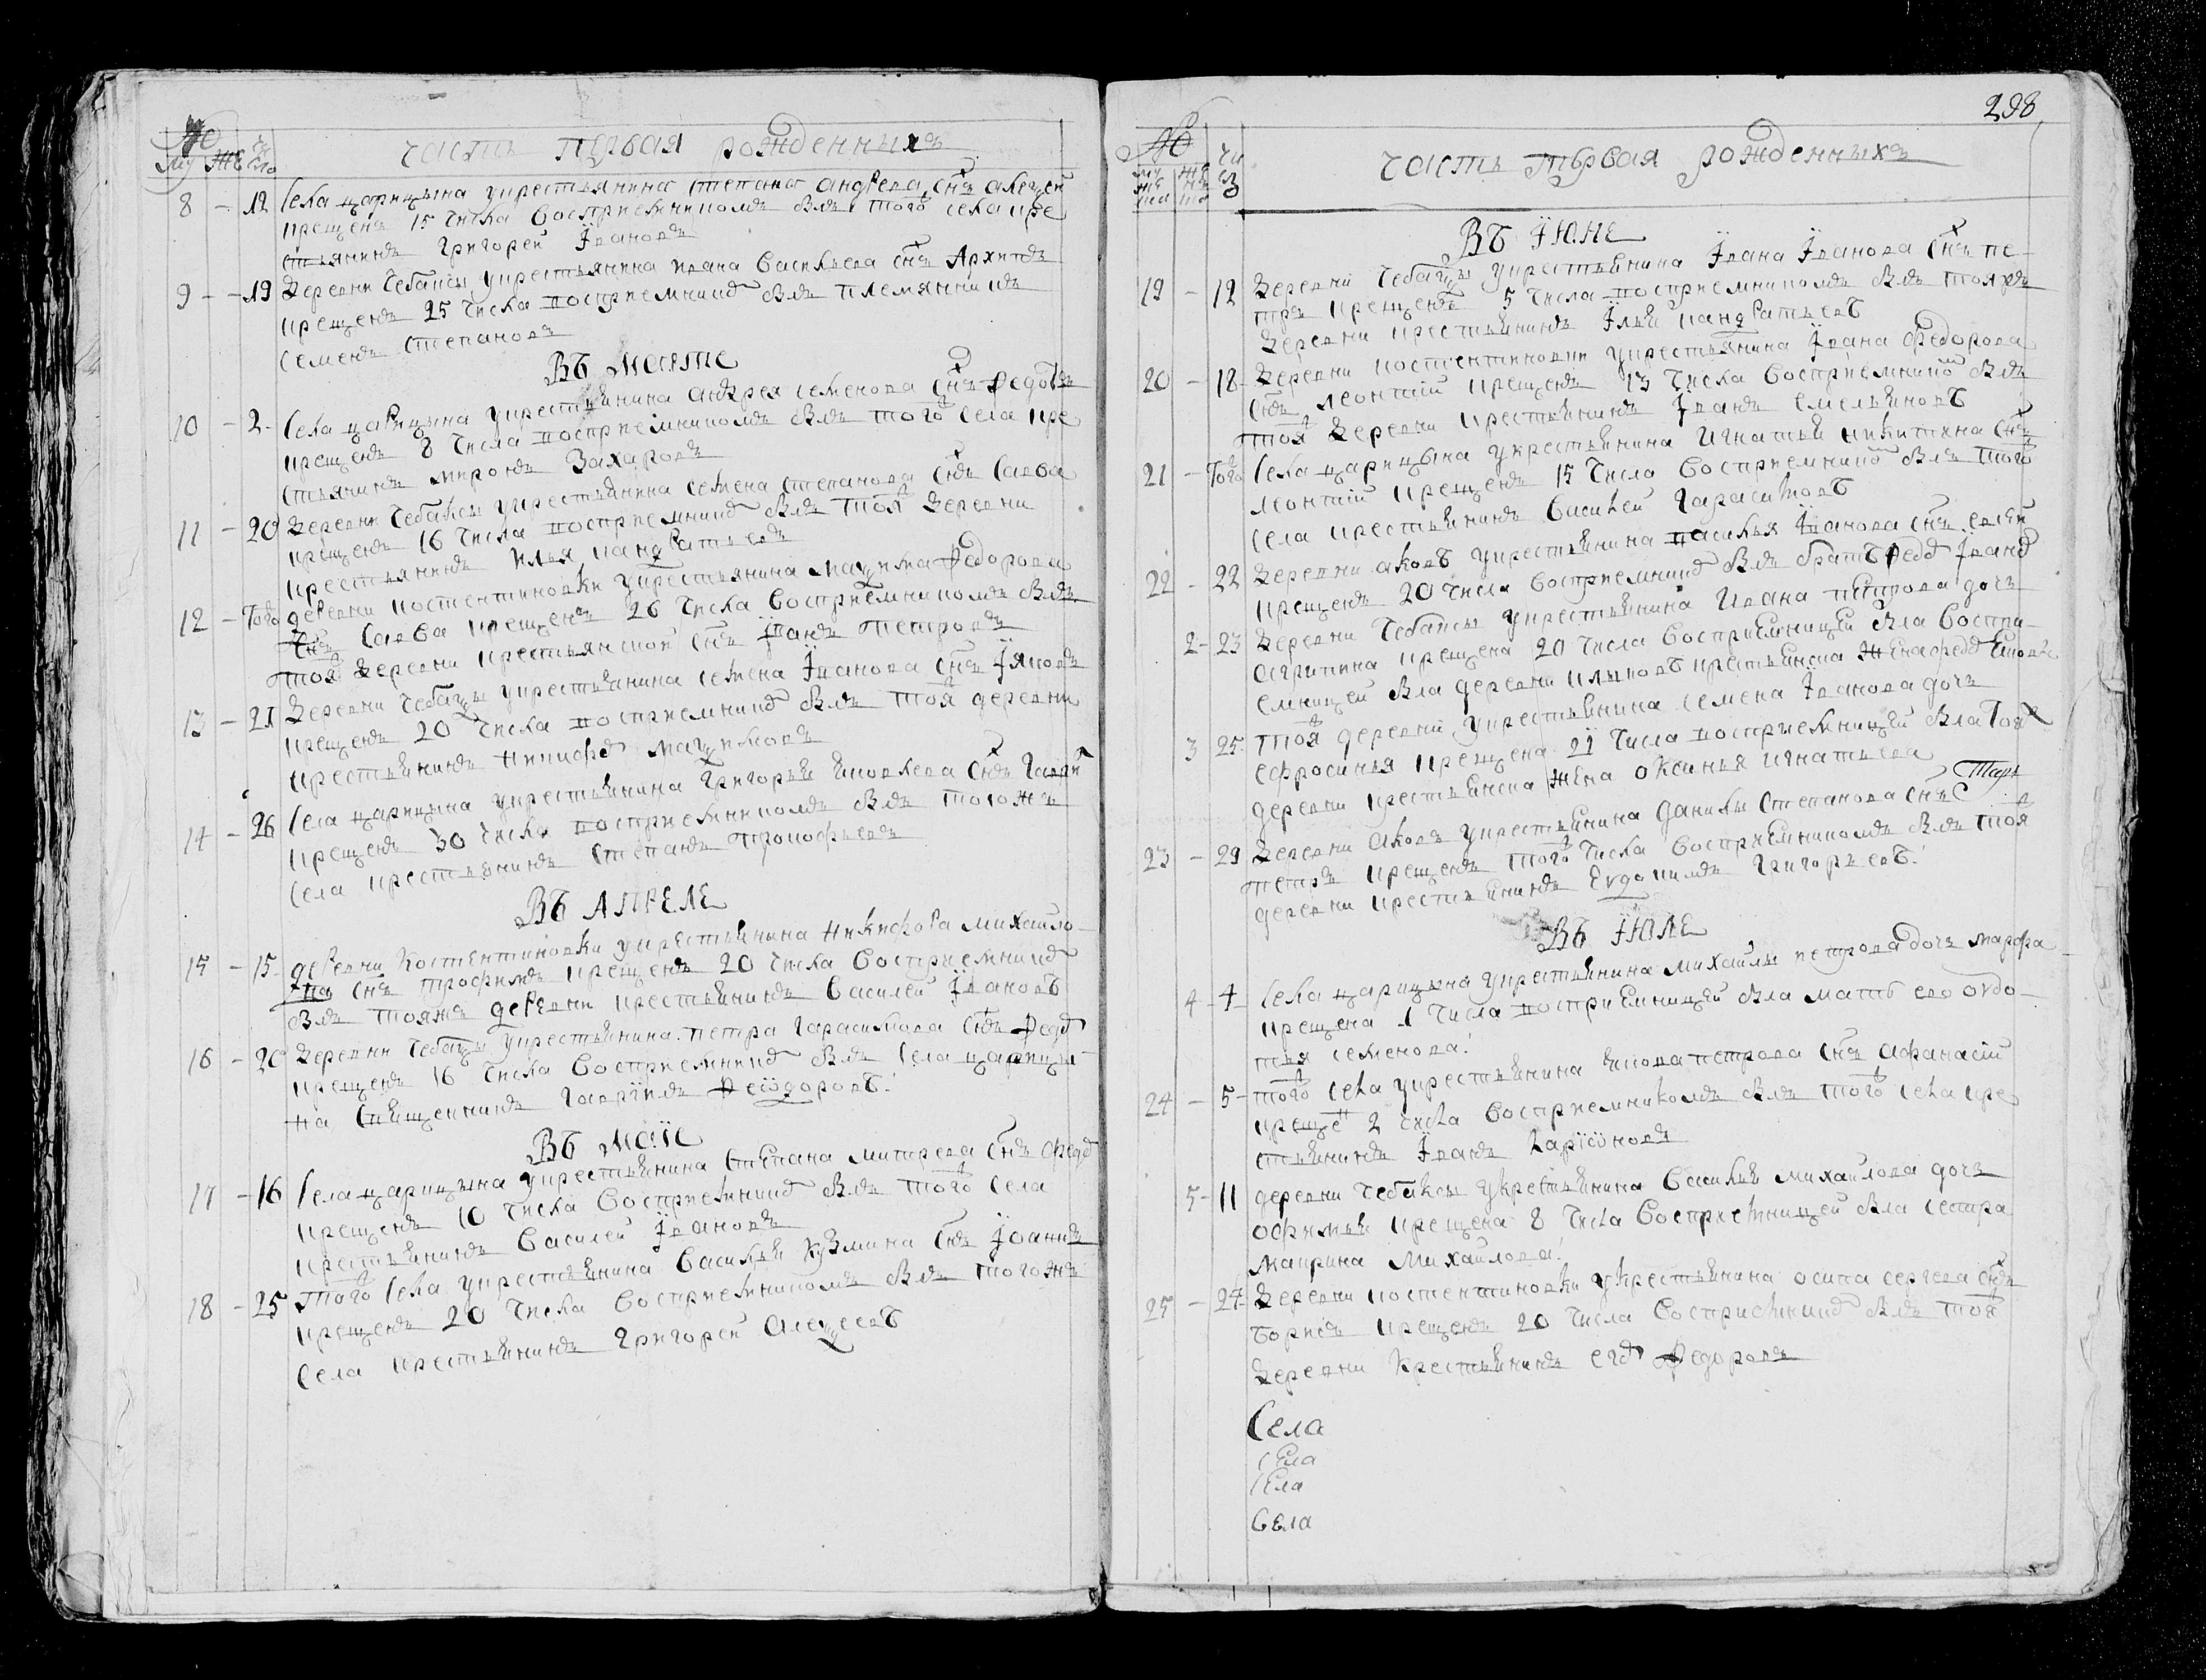 №
Му Же Число
часть первая рожденныхъ
8 - 12 Села царицына укрестьянина степана андреева снъ алеѯей
крещенъ 15 числа восприемникомъ былъ того села кре
стьянинъ григорей Ївановъ
9 - 19 Деревни Чебаксы укрестьянина ивана васильева снъ Архипъ
крещенъ 25 числа восприемникъ былъ племянникъ
семенъ степановъ
Въ марте
10 - 2 Села царицына укрестьянина андрея семенова снъ федотъ
крещенъ 8 числа восприемникомъ былъ того села кре
стьянинъ миронъ Захаровъ
11 - 20 Деревни Чебаксы укрестьянина семена степанова снъ савва
крещенъ 16 числа восприемникъ былъ тоя деревни
крестьянинъ илья кандратьевъ
12 - Того деревни костентиновки укрестьянина маѯима федорова
снъ савва крещенъ 26 числа восприемникомъ былъ
тоя деревни крестьянской снъ Їванъ петровъ
13 - 21 Деревни Чебаѯы укрестьянина семена Їванова снъ Їяковъ
крещенъ 20 числа восприемникъ былъ тоя деревни
крестьянинъ никифоръ маѯимовъ
14 - 26 Села царицына укрестьянина григорья яковлева снъ гаврил
крещенъ 30 числа восприемникомъ былъ тогожъ
села крестьянинъ степанъ прокофьевъ
Въ АПРЕЛЕ
15 - 15 деревни костентиновки укрестьянина никифора михайло
ва снъ трофимъ крещенъ 20 числа восприемникъ
былъ тояжъ деревни крестьянинъ василей Ївановъ
16 - 20 Деревни Чебаѯы укрестьянина петра гарасимова снъ федоръ
крещенъ 16 числа восприемникъ былъ села царицы
на священникъ гаврїилъ Феодоровъ
Въ маїе
17 - 16 Села царицына укрестьянина степана митрева снъ федоръ
крещенъ 10 числа восприемникъ былъ того села
крестьянинъ василей Ївановъ
18 - 25 того села укрестьянина василья кузмина снъ Їоаннъ
крещенъ 20 числа восприемникомъ былъ тогожъ
села крестьянинъ григорей алеѯеевъ
298
№
часть первая рожденныхъ
Въ ЇЮНЕ
19 - 12 Деревни Чебаѯы укрестьянина Ївана Їванова снъ пе
тръ крещенъ 5 числа восприемникомъ былъ тояжъ
деревни крестьянинъ Їлья кандратьевъ
20 - 18 Деревни костентиновки укрестьянина Ївана федорова
снъ леонтїй крещенъ 13 числа восприемникъ былъ
тоя деревни крестьянинъ Їванъ емельяновъ
21 - Того Села царицына укрестьянина игнатья никитина снъ
леонтїй крещенъ 15 числа восприемникъ былъ того
села крестьянинъ василей гарасимовъ
22 - 22 Деревни аковъ укрестьянина василья Їванова снъ елсей
крещенъ 20 числа восприемникъ былъ братъ федоръ Їванов
2 - 23 Деревни Чебаксы укрестьянина ивана петрова дочь
агрипина крещена 20 числа восприемницей была воспри
емницей была деревни крестьянска жена
3 25 тоя деревни укрестьянина семена Їванова дочь
ефросинья крещена 21 числа восприемницей была тоя
деревни крестьянска жена оксинья игнатьева
23 - 29 Деревни аковъ укрестьянина данилы степанова снъ
петръ крещенъ того числа восприемникомъ былъ тоя
деревни крестьянинъ Евдокимъ григорьевъ
Въ ЇЮЛЕ
4 - 4 Села царицына укрестьянина михайлы петрова дочь марфа
крещена 1 числа восприемницей была мать его овдо
тья семенова
24 - 5 того села укрестьянина якова петрова снъ афанасїй
крещен 2 числа восприемникомъ былъ того села кре
стьянинъ Їванъ ларїоновъ
5 - 11 деревни чебаксы укрестьянина василья михайлова дочь
офимья крещена 8 числа восприемницей была сестра
маврина михайлова
25 - 24 Деревни костентиновки укрестьянина осипа сергева снъ
борисъ крещенъ 20 числа восприемникъ былъ тоя
деревни крестьянинъ егоръ Федоровъ
Села
села
села
села